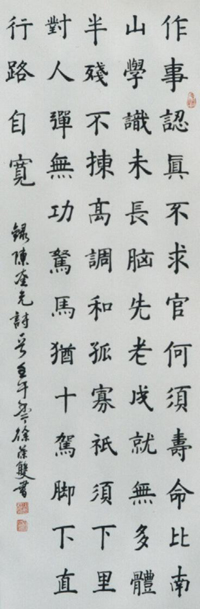 作事認真不求官何須壽命比南
山學識未長脑先老成就無多體
半殘不揀高調和孤寡祇須下里
對人彈無功駑馬猶十駕脚下直
行路自寬
錄陳先詩壬午徐雙書